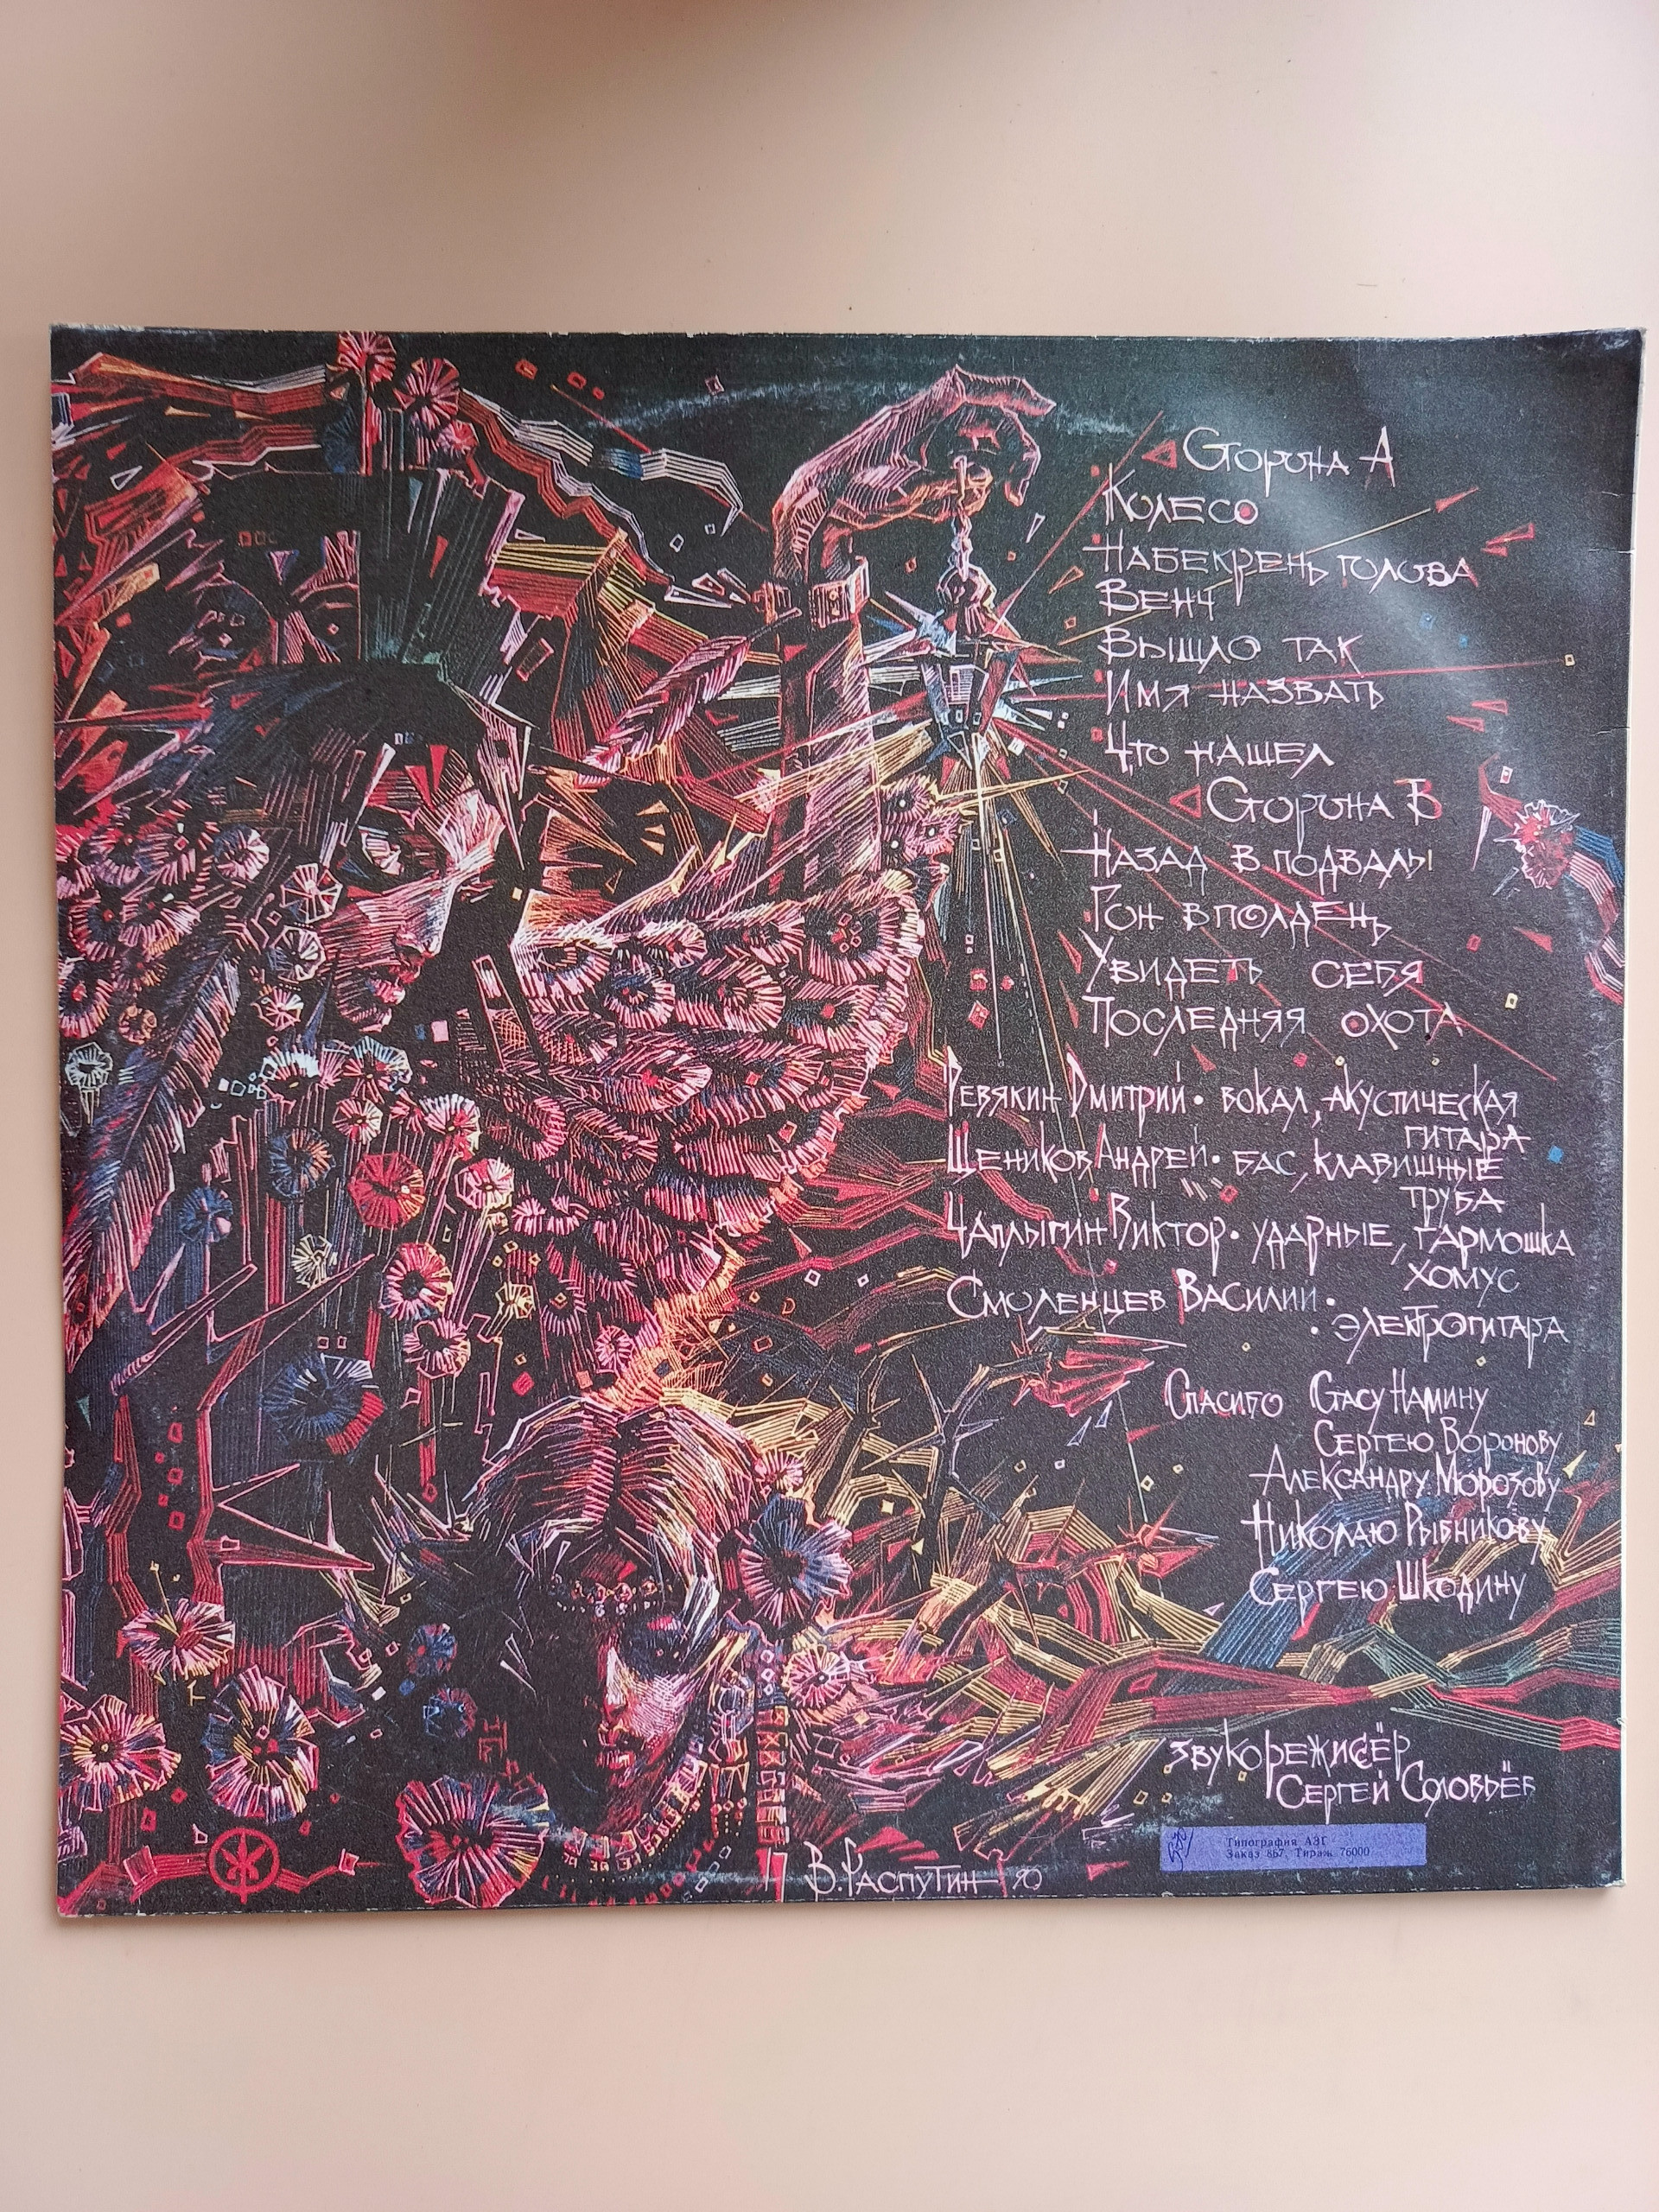 Сторона А
Колесо
Набекрень голова
Венч
Вышло так
Имя назвать
Что нашел
Сторона Б
Назад в подвалы
Гон в полдень
Увидеть себя
Последняя охота
Ревякин Дмитрий • вокал, акустическая
гитара
Щеников Андрей • бас, клавишные
труба
Чаплыгин Виктор • ударные, гармошка
хомус
Смоленцев Василий •
• электрогитара
Спасибо Стасу Намину
Сергею Воронову
Александру Морозову
Николаю Рыбникову
Сергею Шкодину
звукорежиссёр
Сергей Соловьёв
Типография АЗГ
Заказ 867, Тираж 76000
В. Распутин 90